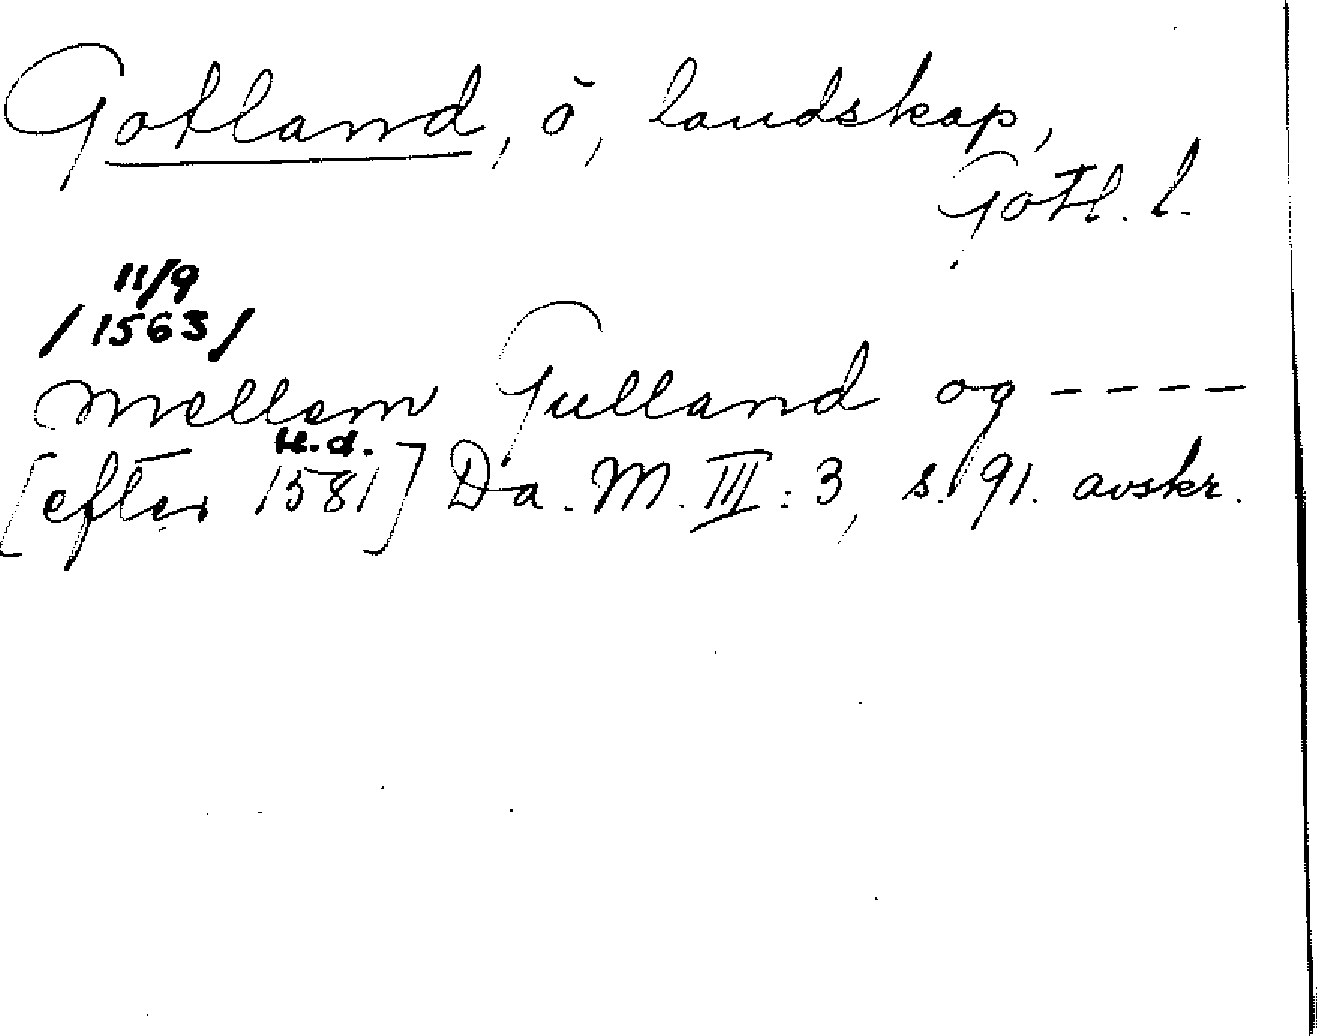 Gotland, ö, landskap,
Gotl. l.
11/9
/1563/
mellem Gulland og ----
H.d.
[efter 1581] Da. M. III: 3, s. 91. avskr.